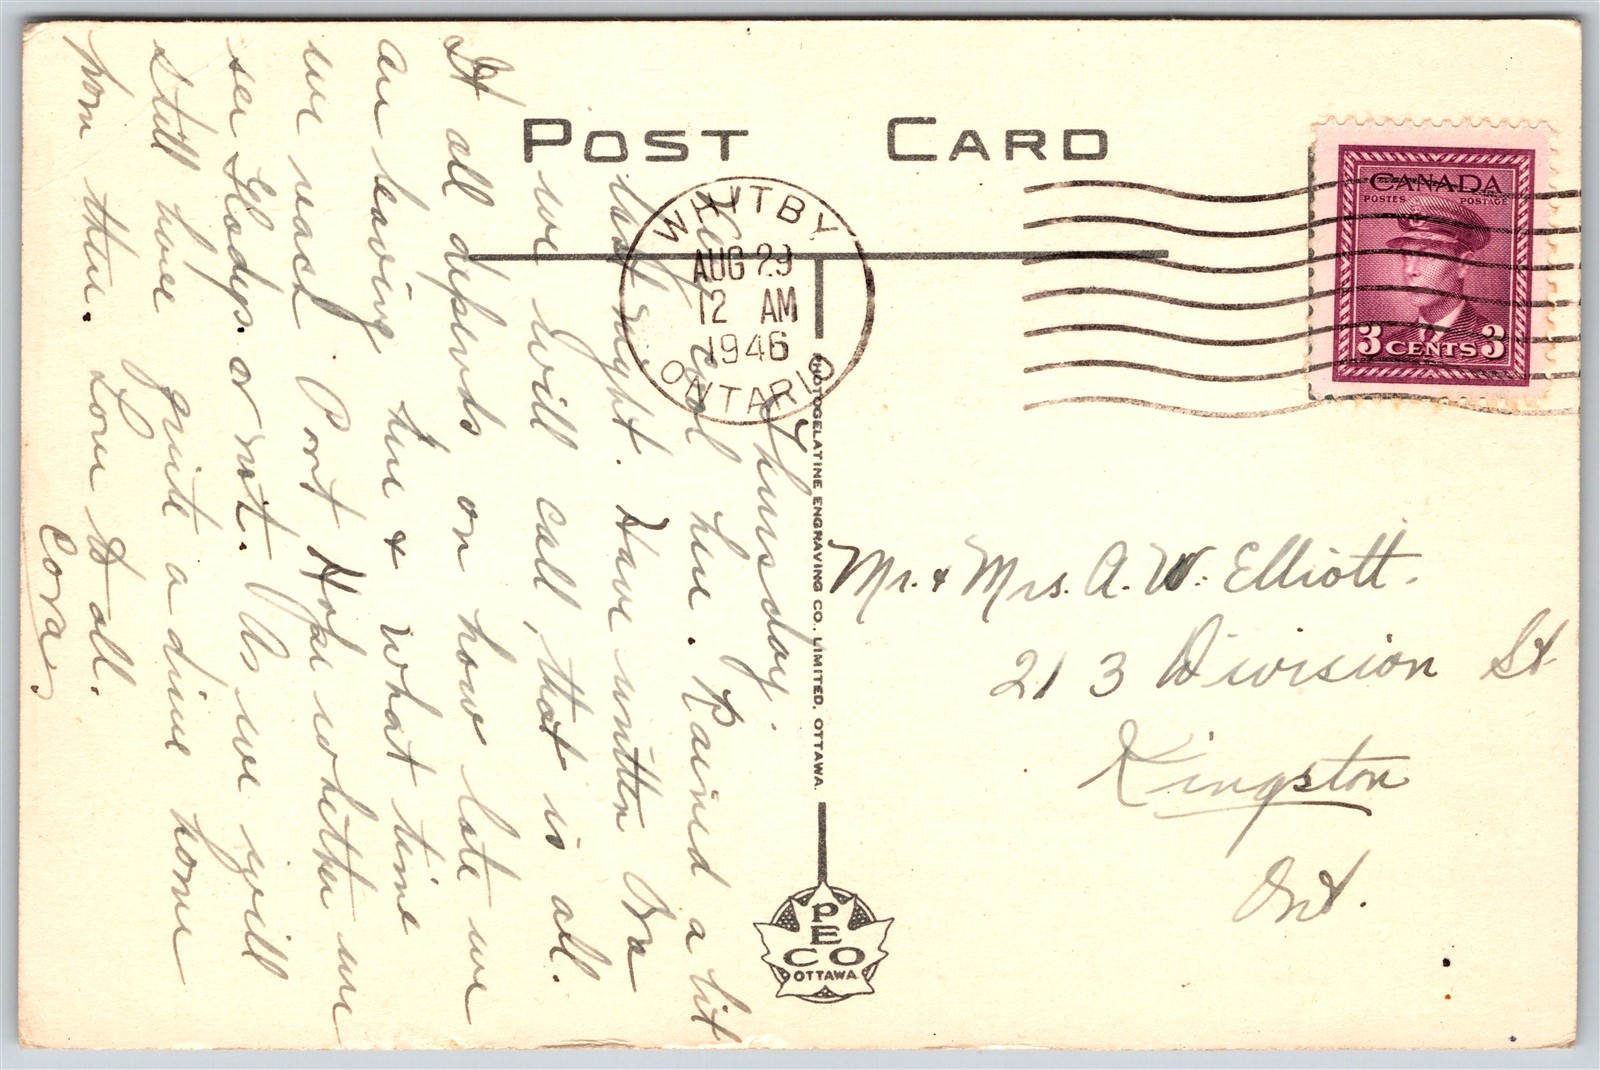 POST CARD
WHITBY
AUG 29
12 AM
1946
ONTARIO
CANADA
POSTES POSTAGE
3 CENTS 3
Thursday.
Very cool here. Rained a bit
last night. Have written Ira
we will call, that is all.
It all depends on how late we
are leaving here & what time
we reach Port Hope whether we
see Gladys or not. As we will
still have quite a drive home
from there. Love to all.
Cora
Mr. & Mrs. A. W. Elliott.
213 Division St
Kingston
Ont.
PHOTOGELATINE ENGRAVING CO., LIMITED, OTTAWA.
PECO
OTTAWA